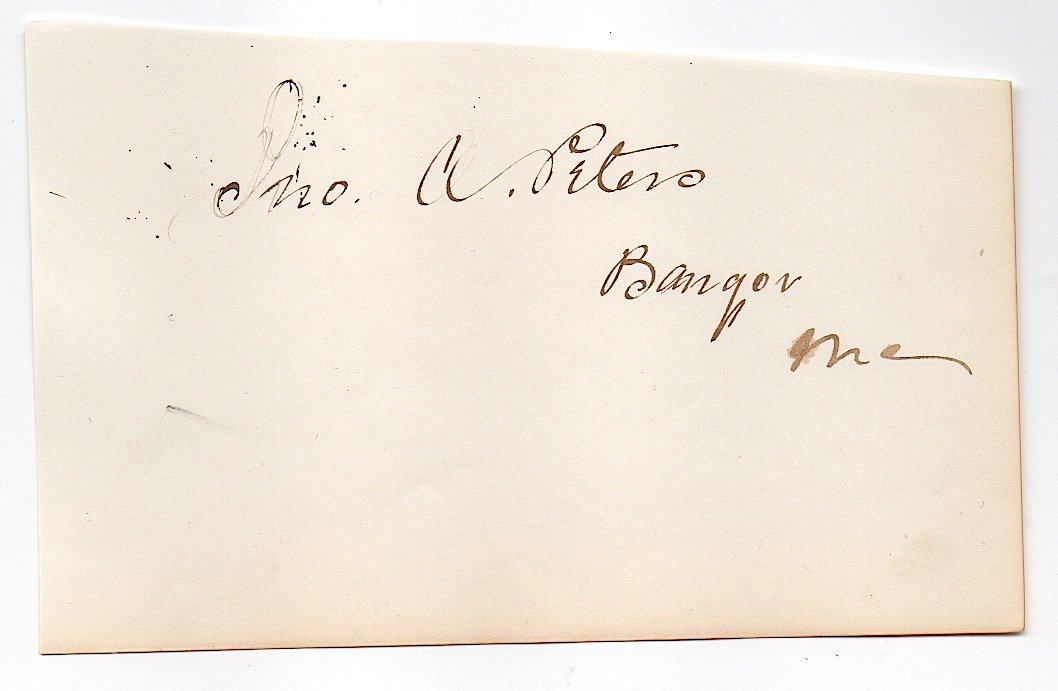 Jno. A. Peters
Bangor
Me